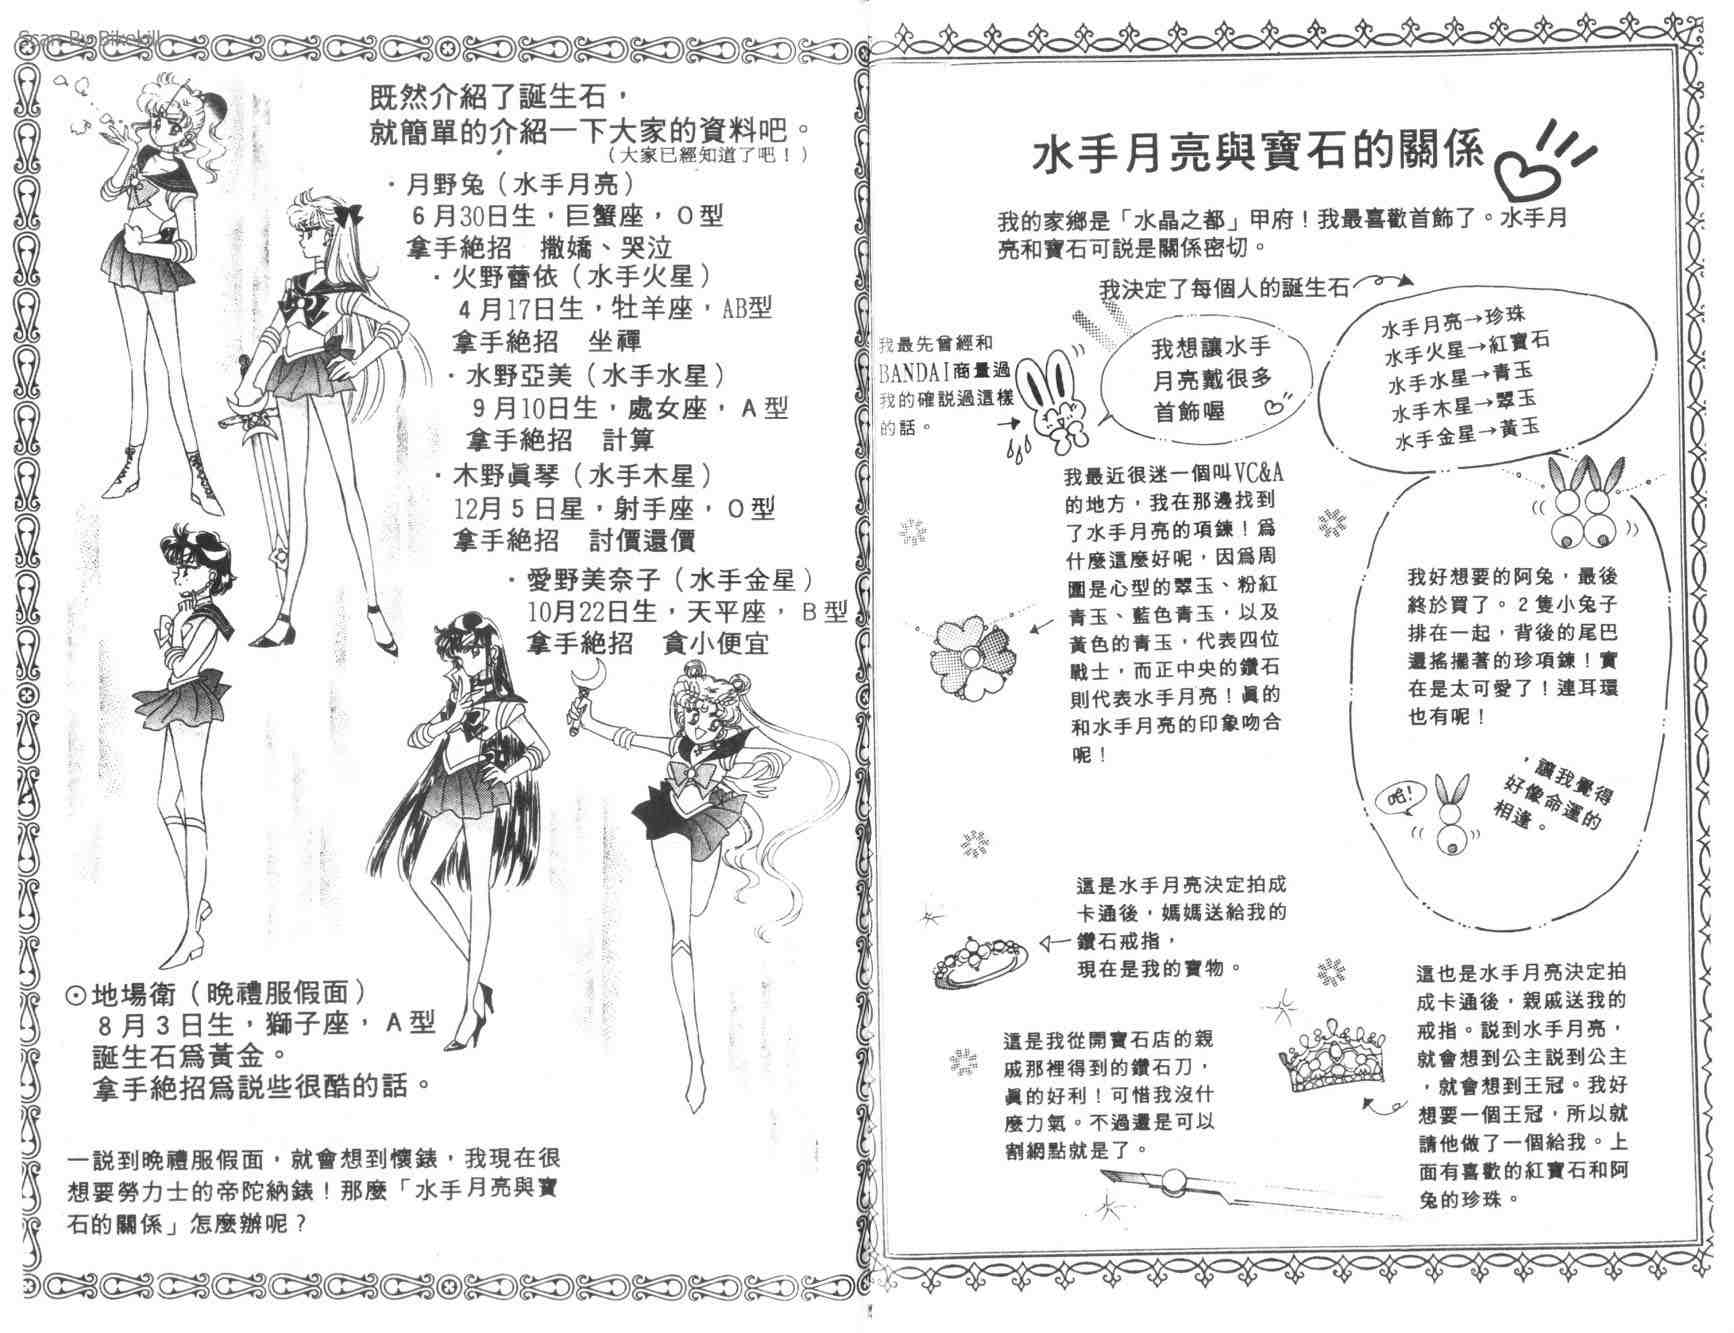 Scan By Bikekill
水手月亮與寶石的關係
我的家鄉是「水晶之都」甲府！我最喜歡首飾了。水手月
亮和寶石可説是關係密切。
我決定了每個人的誕生石
水手月亮→珍珠
水手火星→紅寶石
水手水星→青玉
水手木星→翠玉
水手金星→黃玉
我想讓水手
月亮戴很多
首飾喔
我最先曾經和
BANDAI商量過
我的確説過這樣
的話。→
我最近很迷一個叫VC&A
的地方，我在那邊找到
了水手月亮的項鍊！爲
什麼這麼好呢，因爲周
圍是心型的翠玉、粉紅
青玉、藍色青玉，以及
黃色的青玉，代表四位
戰士，而正中央的鑽石
則代表水手月亮！眞的
和水手月亮的印象吻合
呢！
我好想要的阿兔，最後
終於買了。2隻小兔子
排在一起，背後的尾巴
還搖擺著的珍項鍊！實
在是太可愛了！連耳環
也有呢！
，讓我覺得
好像命運的
相逢。
哈！
這是水手月亮決定拍成
卡通後，媽媽送給我的
鑽石戒指，
現在是我的寶物。
這也是水手月亮決定拍
成卡通後，親戚送我的
戒指。説到水手月亮，
就會想到公主説到公主
，就會想到王冠。我好
想要一個王冠，所以就
請他做了一個給我。上
面有喜歡的紅寶石和阿
兔的珍珠。
這是我從開寶石店的親
戚那裡得到的鑽石刀，
眞的好利！可惜我沒什
麼力氣。不過還是可以
割網點就是了。
既然介紹了誕生石，
就簡單的介紹一下大家的資料吧。
（大家已經知道了吧！）
・月野兔（水手月亮）
6月30日生，巨蟹座，O型
拿手絶招　撒嬌、哭泣
・火野蕾依（水手火星）
4月17日生，牡羊座，AB型
拿手絶招　坐禪
・水野亞美（水手水星）
9月10日生，處女座，A型
拿手絶招　計算
・木野眞琴（水手木星）
12月5日星，射手座，O型
拿手絶招　討價還價
・愛野美奈子（水手金星）
10月22日生，天平座，B型
拿手絶招　貪小便宜
⊙地場衛（晩禮服假面）
8月3日生，獅子座，A型
誕生石爲黃金。
拿手絶招爲説些很酷的話。
一説到晩禮服假面，就會想到懷錶，我現在很
想要勞力士的帝陀納錶！那麼「水手月亮與寶
石的關係」怎麼辦呢？